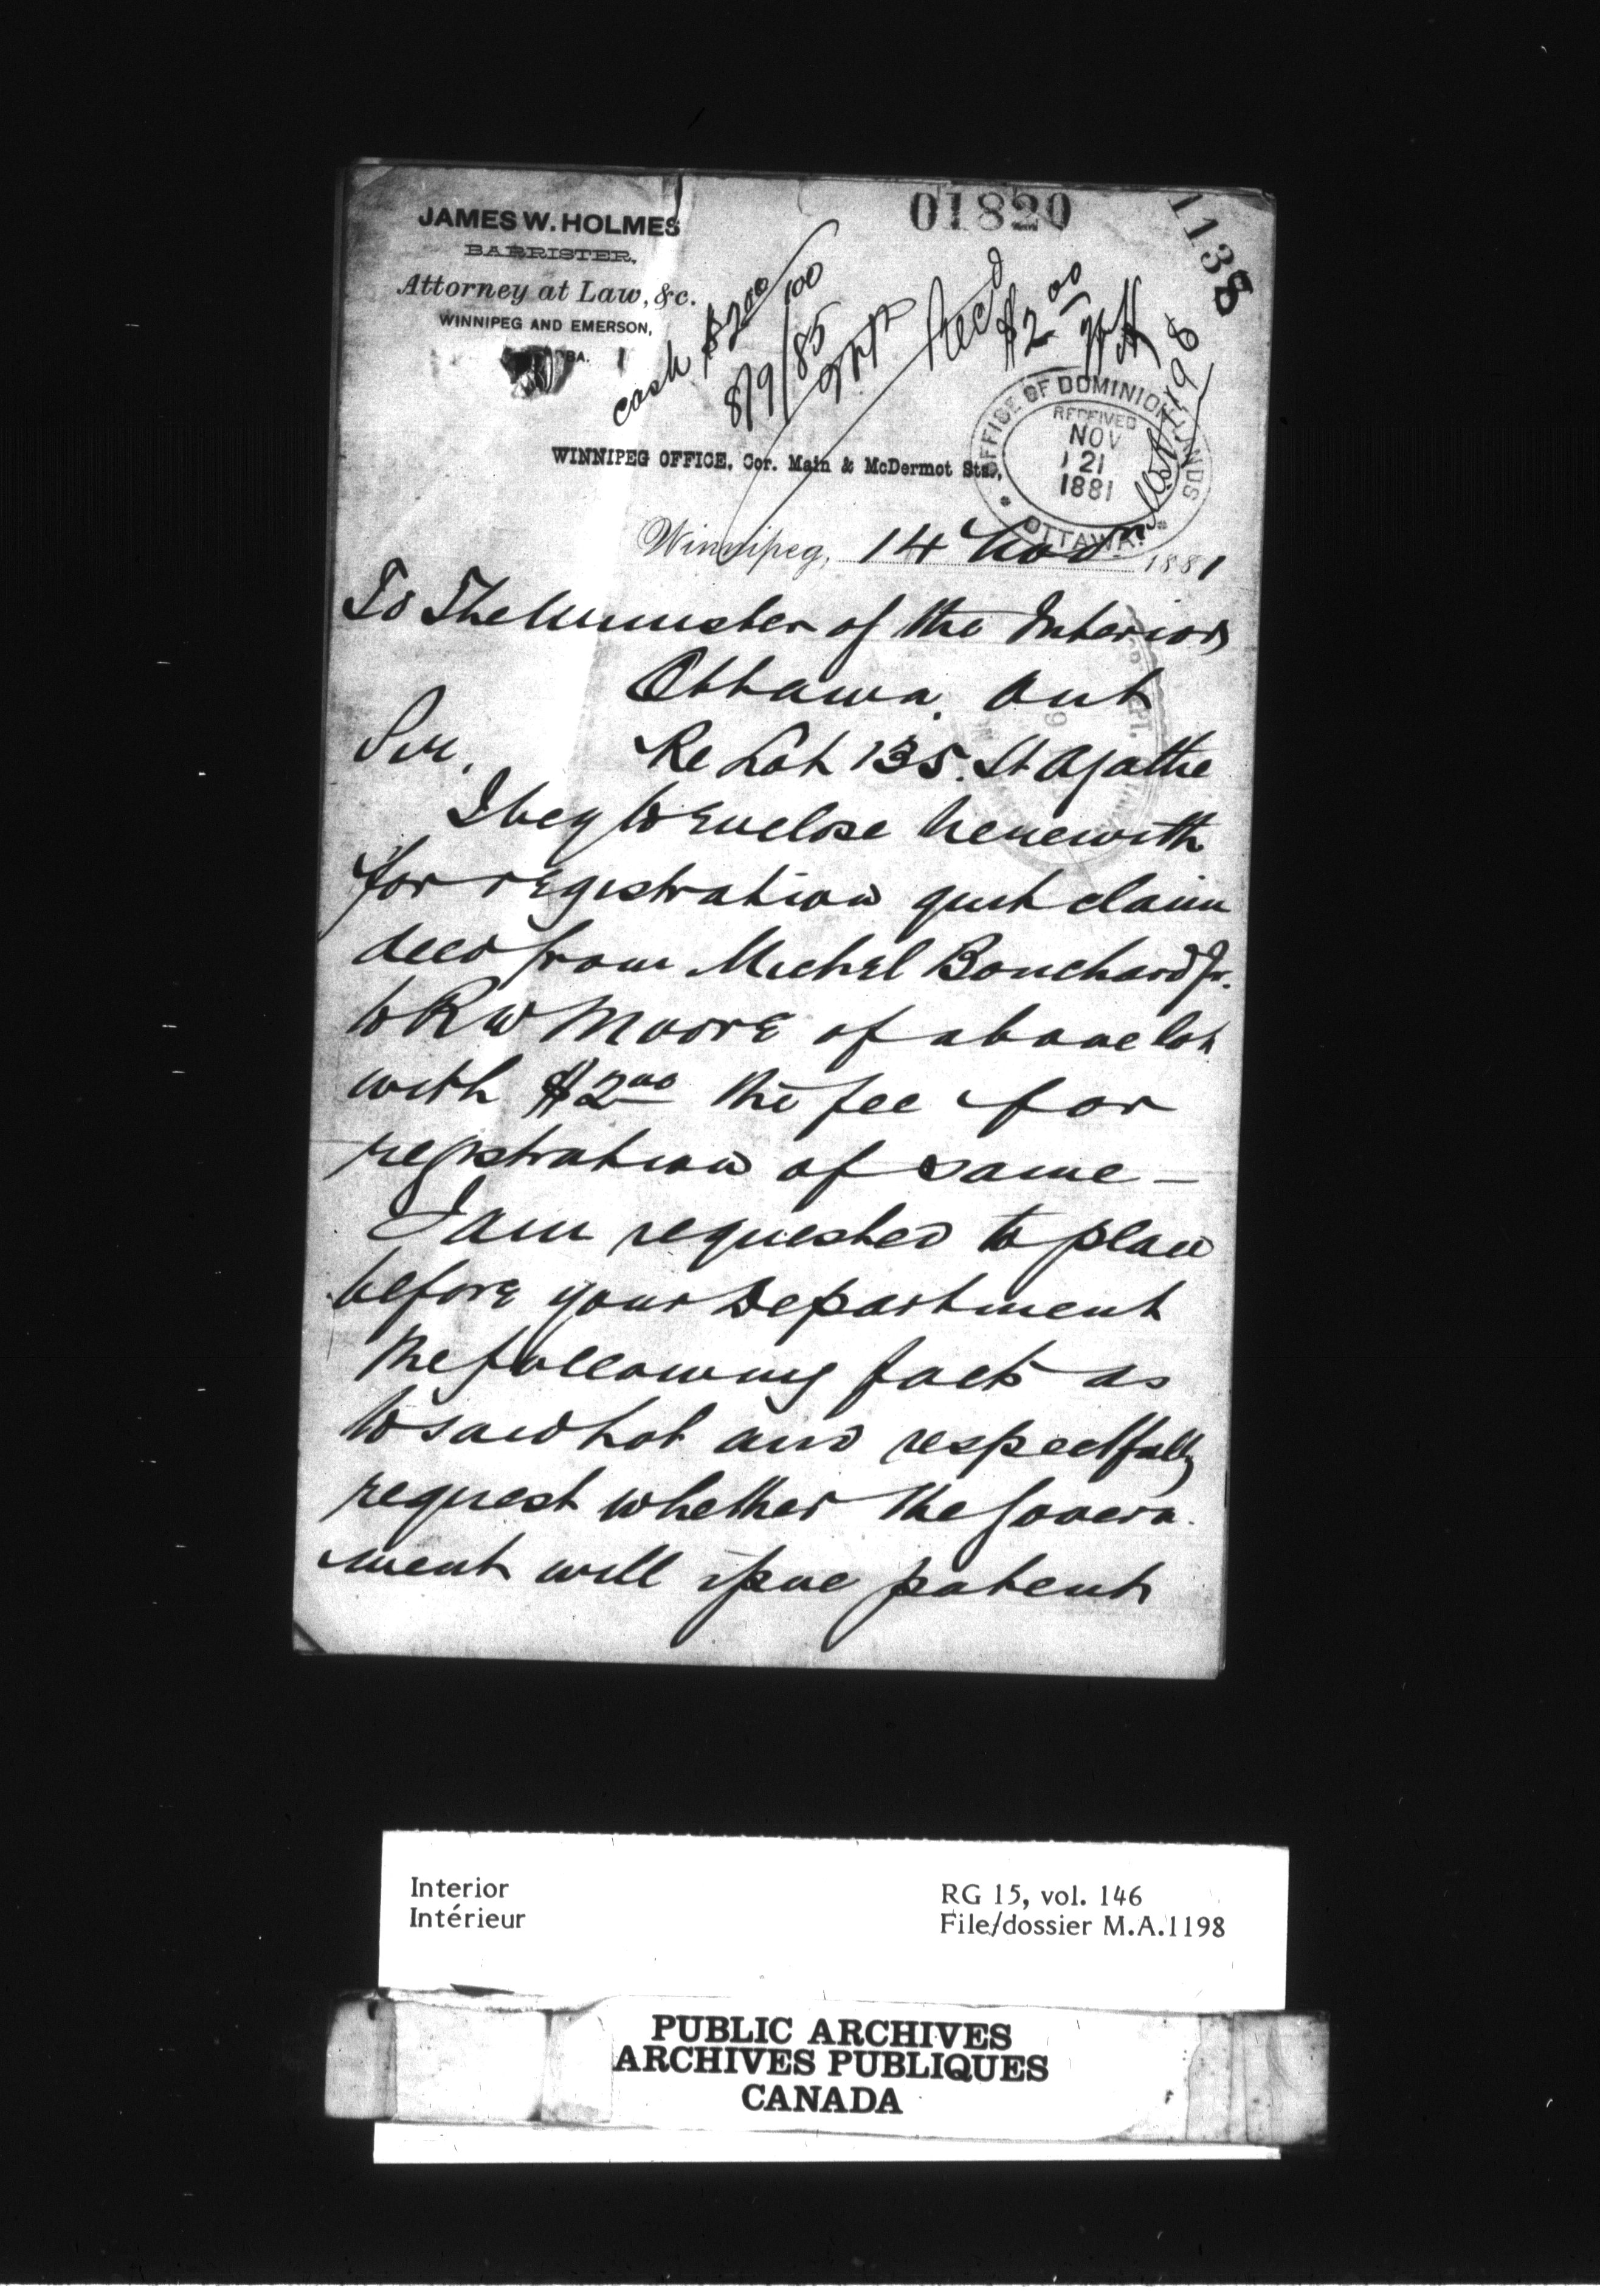 01820
1138
JAMES W. HOLMES
BARRISTER,
Attorney at Law, &c.
WINNIPEG AND EMERSON,
BA.
cash $2.00/100
8/9/85
Rec'd
$2.00
1198
OFFICE OF DOMINION LANDS
RECEIVED
NOV
21
1881
OTTAWA
WINNIPEG OFFICE, Cor. Main & McDermot Sts.,
Winnipeg, 14 Nov 1881
To The Minister of the Interior
Ottawa. Ont
Sir, Re Lot 135. St Agathe
I beg to Enclose herewith
for registration quit claim
deed from Michel Bouchard Jr.
to R W Moore of above lot
with $2.00 the fee for
registration of same —
I am requested to place
before your Department
the following facts as
to said Lot and respectfully
request whether the Govern-
ment will issue patent
Interior
Intérieur
RG 15, vol. 146
File/dossier M.A.1198
PUBLIC ARCHIVES
ARCHIVES PUBLIQUES
CANADA